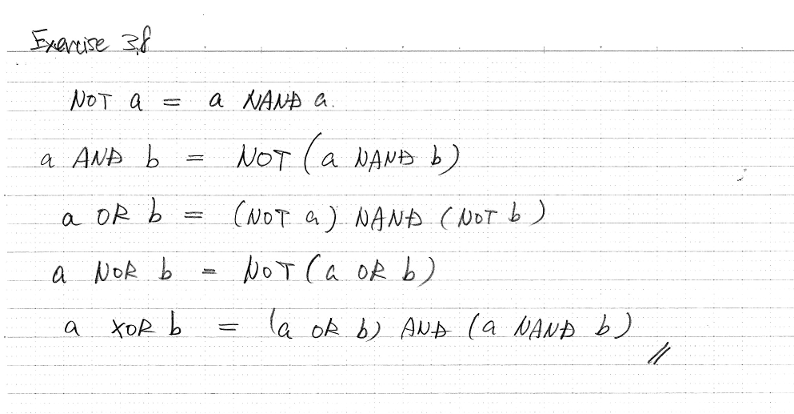 Exercise 3.8
NOT a = a NAND a.
a AND b = NOT (a NAND b)
a OR b = (NOT a) NAND (NOT b)
a NOR b = NOT (a OR b)
a XOR b = (a OR b) AND (a NAND b) //